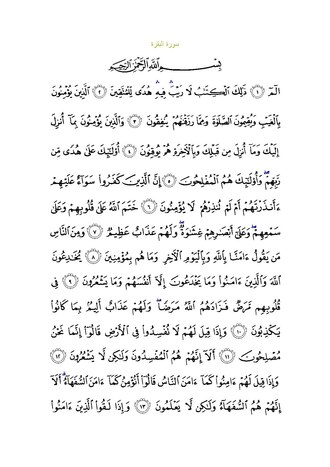 سورة البقرة
بِسْمِ ٱللَّهِ ٱلرَّحْمَٰنِ ٱلرَّحِيمِ
الٓمٓ ١ ذَٰلِكَ ٱلْكِتَٰبُ لَا رَيْبَ ۛ فِيهِ ۛ هُدًى لِّلْمُتَّقِينَ ٢ ٱلَّذِينَ يُؤْمِنُونَ
بِٱلْغَيْبِ وَيُقِيمُونَ ٱلصَّلَوٰةَ وَمِمَّا رَزَقْنَٰهُمْ يُنفِقُونَ ٣ وَٱلَّذِينَ يُؤْمِنُونَ بِمَآ أُنزِلَ
إِلَيْكَ وَمَآ أُنزِلَ مِن قَبْلِكَ وَبِٱلْءَاخِرَةِ هُمْ يُوقِنُونَ ٤ أُو۟لَٰٓئِكَ عَلَىٰ هُدًى مِّن
رَّبِّهِمْ ۖ وَأُو۟لَٰٓئِكَ هُمُ ٱلْمُفْلِحُونَ ٥ إِنَّ ٱلَّذِينَ كَفَرُوا۟ سَوَآءٌ عَلَيْهِمْ
ءَأَنذَرْتَهُمْ أَمْ لَمْ تُنذِرْهُمْ لَا يُؤْمِنُونَ ٦ خَتَمَ ٱللَّهُ عَلَىٰ قُلُوبِهِمْ وَعَلَىٰ
سَمْعِهِمْ ۖ وَعَلَىٰٓ أَبْصَٰرِهِمْ غِشَٰوَةٌ ۖ وَلَهُمْ عَذَابٌ عَظِيمٌ ٧ وَمِنَ ٱلنَّاسِ
مَن يَقُولُ ءَامَنَّا بِٱللَّهِ وَبِٱلْيَوْمِ ٱلْءَاخِرِ وَمَا هُم بِمُؤْمِنِينَ ٨ يُخَٰدِعُونَ
ٱللَّهَ وَٱلَّذِينَ ءَامَنُوا۟ وَمَا يَخْدَعُونَ إِلَّآ أَنفُسَهُمْ وَمَا يَشْعُرُونَ ٩ فِى
قُلُوبِهِم مَّرَضٌ فَزَادَهُمُ ٱللَّهُ مَرَضًا ۖ وَلَهُمْ عَذَابٌ أَلِيمٌۢ بِمَا كَانُوا۟
يَكْذِبُونَ ١٠ وَإِذَا قِيلَ لَهُمْ لَا تُفْسِدُوا۟ فِى ٱلْأَرْضِ قَالُوٓا۟ إِنَّمَا نَحْنُ
مُصْلِحُونَ ١١ أَلَآ إِنَّهُمْ هُمُ ٱلْمُفْسِدُونَ وَلَٰكِن لَّا يَشْعُرُونَ ١٢
وَإِذَا قِيلَ لَهُمْ ءَامِنُوا۟ كَمَآ ءَامَنَ ٱلنَّاسُ قَالُوٓا۟ أَنُؤْمِنُ كَمَآ ءَامَنَ ٱلسُّفَهَآءُ ۗ أَلَآ
إِنَّهُمْ هُمُ ٱلسُّفَهَآءُ وَلَٰكِن لَّا يَعْلَمُونَ ١٣ وَإِذَا لَقُوا۟ ٱلَّذِينَ ءَامَنُوا۟